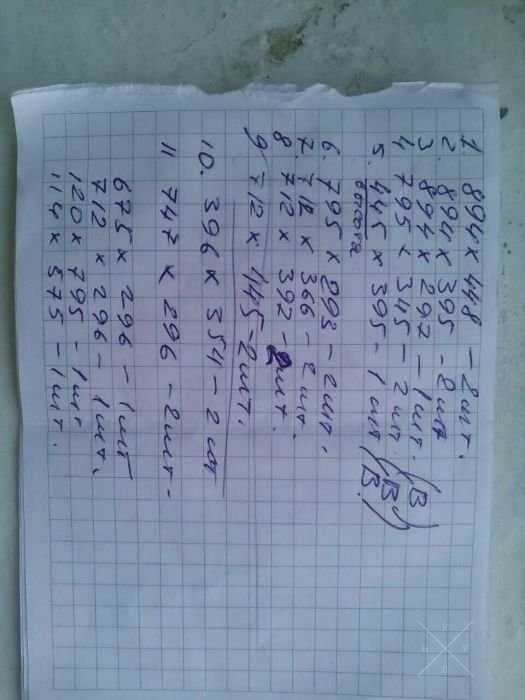 1. 894 x 448 - 2 шт.
2. 894 x 395 - 2 шт
3 894 x 292 - 1 шт. (В)
4 795 x 345 - 2 шт. (В)
5. 445 x 395 - 1 шт (В.)
6. 795 x 293 - 2 шт.
7. 712 x 366 - 2 шт.
8 712 x 392 - 2 шт.
9 712 x 445 - 2 шт.
10. 396 x 354 - 2 шт
11 747 x 296 - 2 шт -
675 x 296 - 1 шт
712 x 296 - 1 шт.
120 x 795 - 1 шт
114 x 575 - 1 шт.